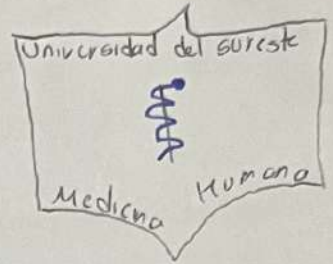 Universidad del sureste
Medicina Humana